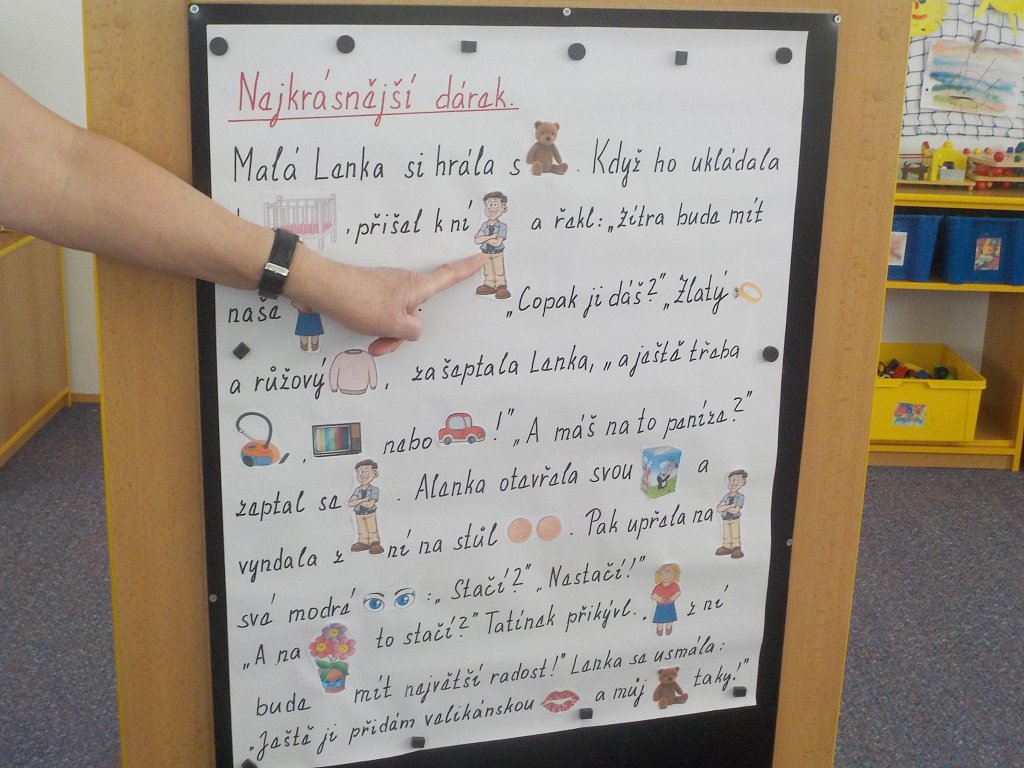 Nejkrásnější dárek.
Malá Lenka si hrála s . Když ho ukládala
, přišel k ní a řekl: „Zítra bude mít
naše . „Copak ji dáš?" „Zlatý
a růžový , zašeptala Lenka, „a ještě třeba
, nebo !" „A máš na to peníze?"
zeptal se . Alenka otevřela svou a
vyndala z ní na stůl . Pak upřela na
svá modrá : „Stačí?" „Nestačí!"
„A na to stačí?" Tatínek přikývl. „ z ní
bude mít největší radost!" Lenka se usmála:
„Ještě ji přidám velikánskou a můj taky!"